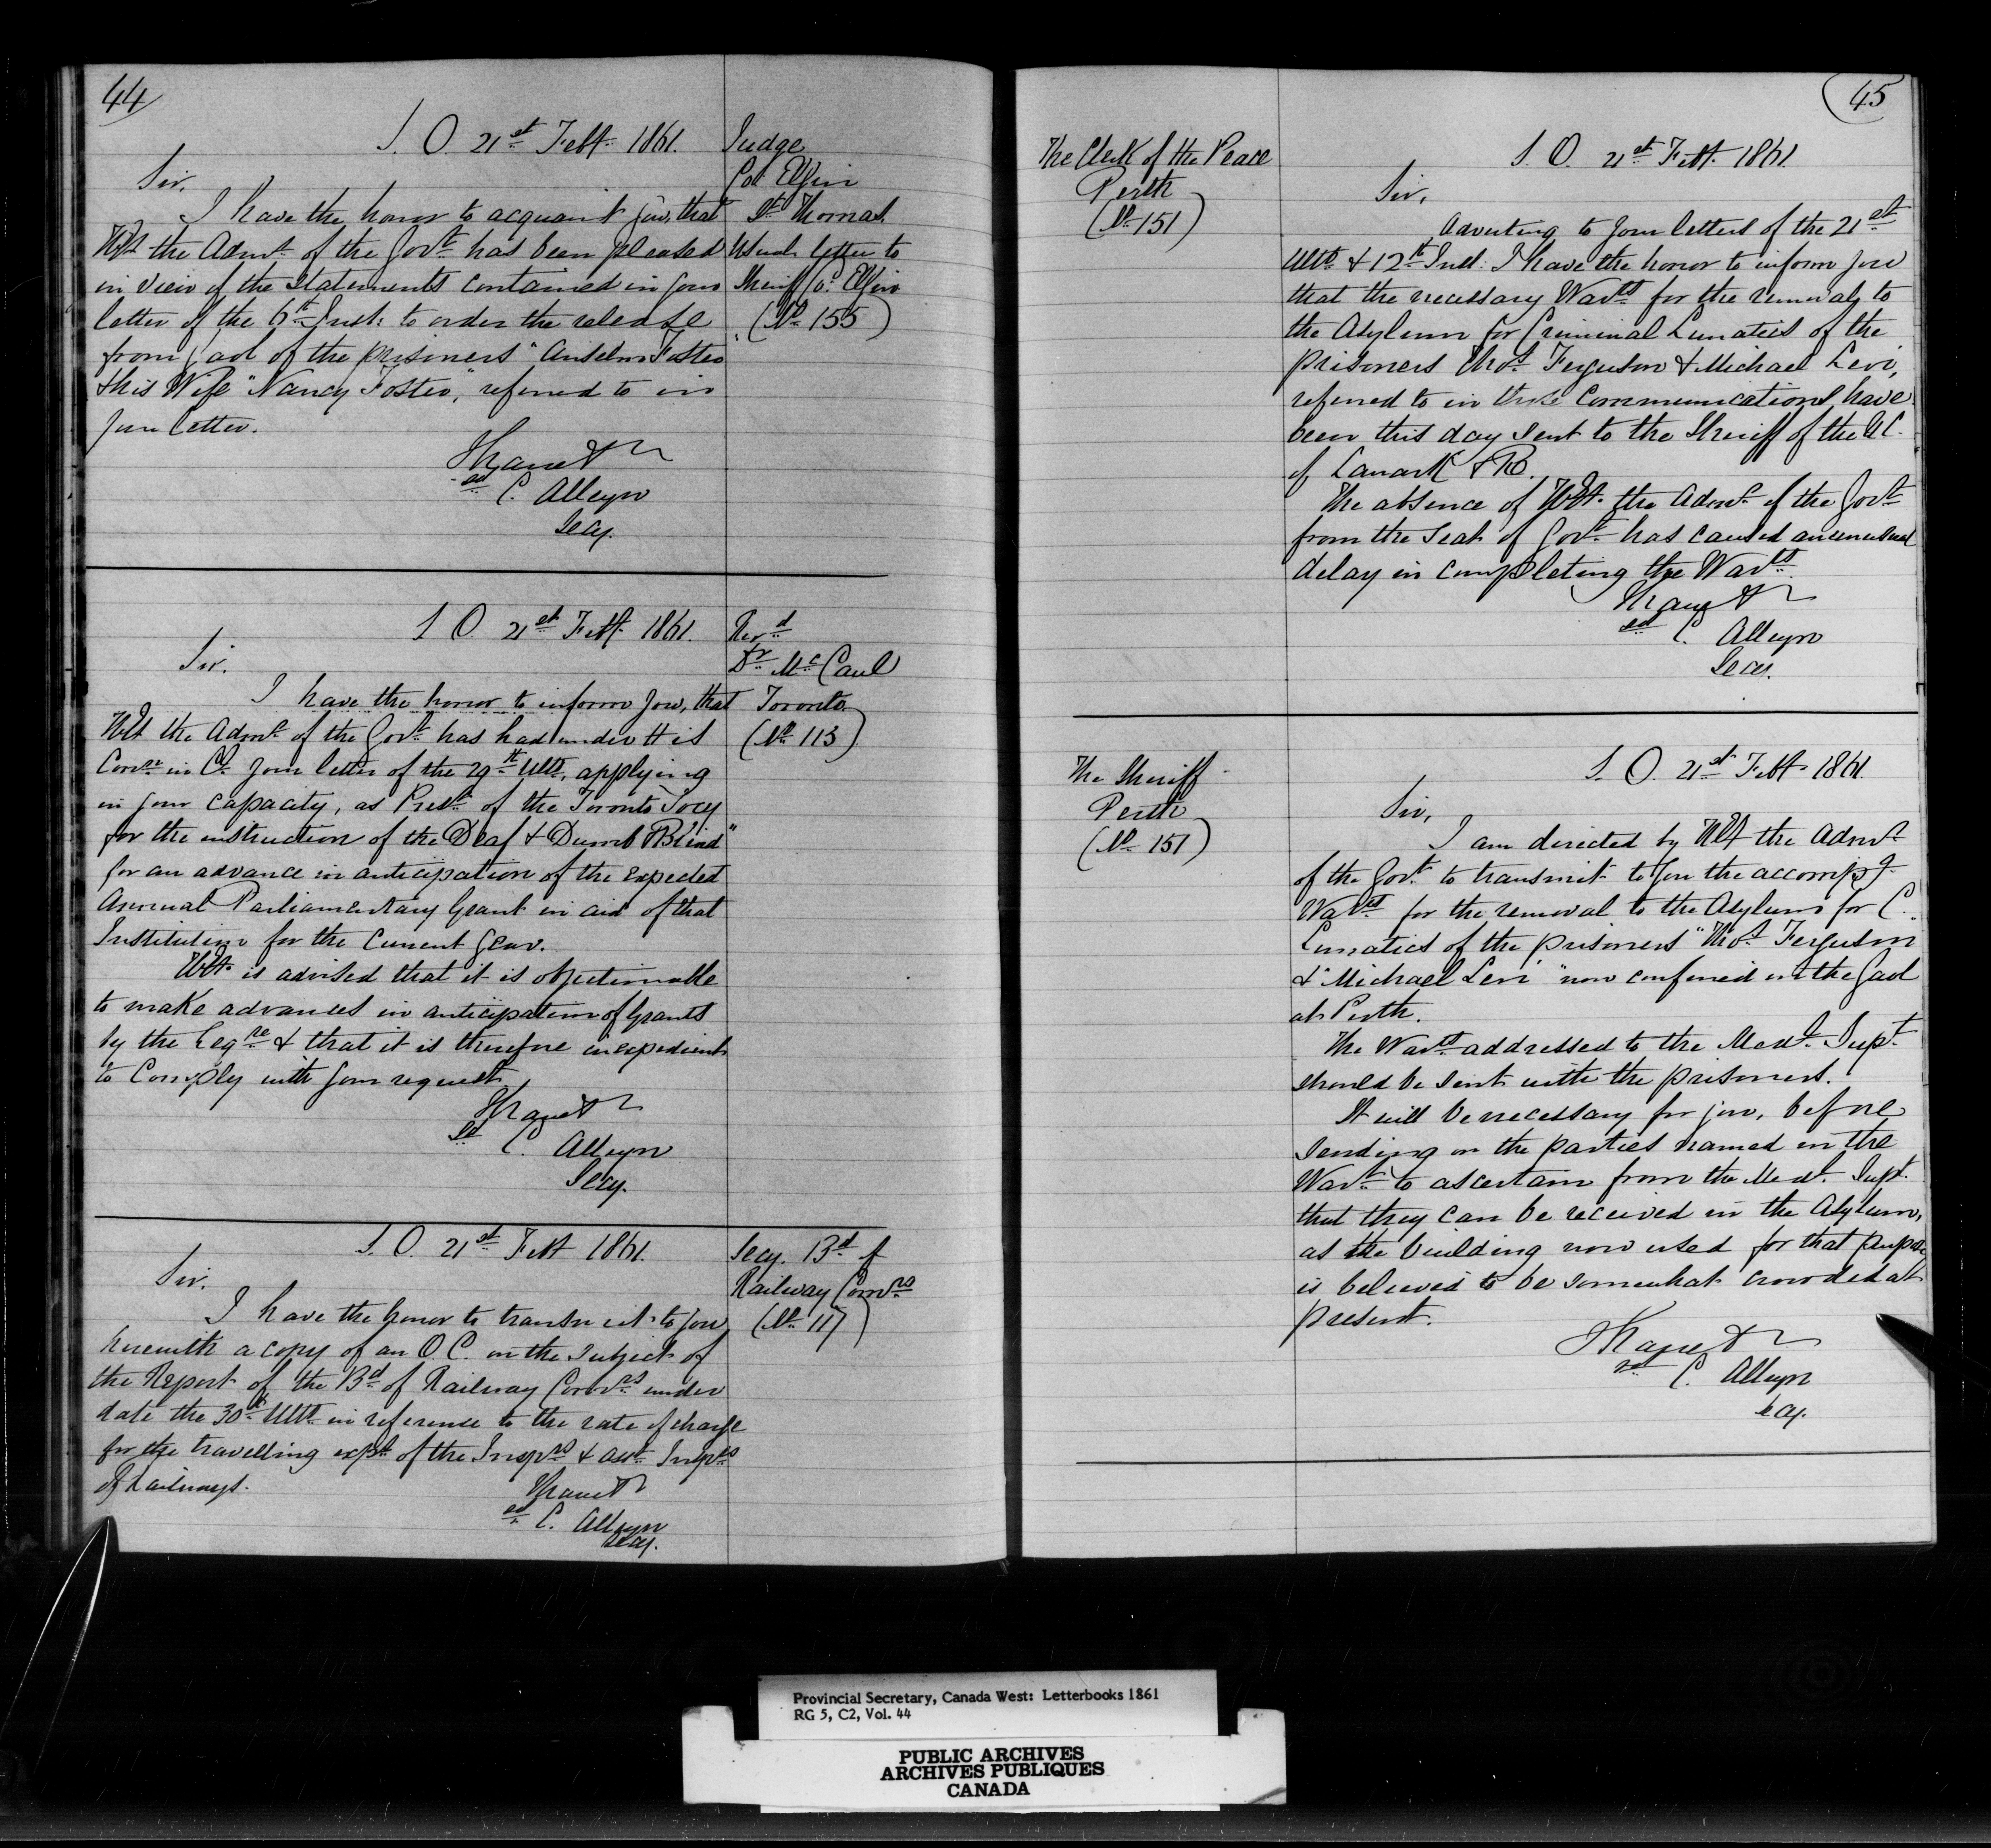 44
S. O. 21st Feby. 1861.
Judge
Co. Elgin
St. Thomas.
Usual letter to
Sheriff Co. Elgin
(No. 155)
Sir,
I have the honor to acquaint you, that
HE the Admr. of the Govt. has been pleased
in view of the Statements contained in your
letter of the 6th Inst: to order the release
from Gaol of the prisoners "Anselm Foster
& his Wife "Nancy Foster," referred to in
your letter.
I have &
sd C. Alleyn
Secy.
S. O. 21st Feby. 1861.
Revd.
Dr. McCaul
Toronto.
(No. 113)
Sir.
I have the honor to inform you, that
HE the Admr. of the Govt. has had under His
Conn. in Cl. your letter of the 29th Ulto, applying
in your capacity, as Prest. of the Toronto Socy
for the instruction of the Deaf & Dumb & Blind"
for an advance in anticipation of the expected
Annual Parliamentary Grant in aid of that
Institution for the current year.
HE. is advised that it is objectionable
to make advances in anticipation of Grants
by the Legre. & that it is therefore inexpedient
to comply with your request.
I have &
sd C. Alleyn
Secy.
S. O. 21st Feby 1861.
Secy. Bd. of
Railway Comrs.
(No. 117)
Sir.
I have the honor to transmit to you
herewith a copy of an O C. on the subject of
the Report of the Bd. of Railway Comrs. under
date the 30th Ulto. in reference to the rate of charge
for the travelling exps. of the Insprs. & asst. Insprs
of Railways.
I have &
sd C. Alleyn
Secy.
45
The Clerk of the Peace
Perth
(No. 151)
S. O. 21st Feby. 1861.
Sir,
Adverting to your letters of the 21st
Ulto. & 12th Inst: I have the honor to inform you
that the necessary Warts. for the removal to
the Asylum for Criminal Lunatics of the
prisoners Thos. Ferguson & Michael Levi,
referred to in those communications have
been this day sent to the Sheriff of the U C.
of Lanark & R.
The absence of HE. the Admr. of the Govt.
from the Seat of Govt. has caused an unusual
delay in completing the Warts.
I have &
sd C. Alleyn
Secy.
The Sheriff
Perth
(No. 151)
S. O. 21st Feby. 1861.
Sir,
I am directed by HE the Admr.
of the Govt. to transmit to you the accompg.
Warts. for the removal to the Asylum for C.
Lunatics of the prisoners "Thos. Ferguson
& "Michael Levi" now confined in the Gaol
at Perth.
The Wart. addressed to the Medl. Supt.
should be sent with the prisoners.
It will be necessary for you, before
sending on the parties named in the
Wart. to ascertain from the Medl. Supt.
that they can be received in the Asylum,
as the building now used for that purpose
is believed to be somewhat crowded at
present.
I have &
sd C. Alleyn
Secy.
Provincial Secretary, Canada West: Letterbooks 1861
RG 5, C2, Vol. 44
PUBLIC ARCHIVES
ARCHIVES PUBLIQUES
CANADA